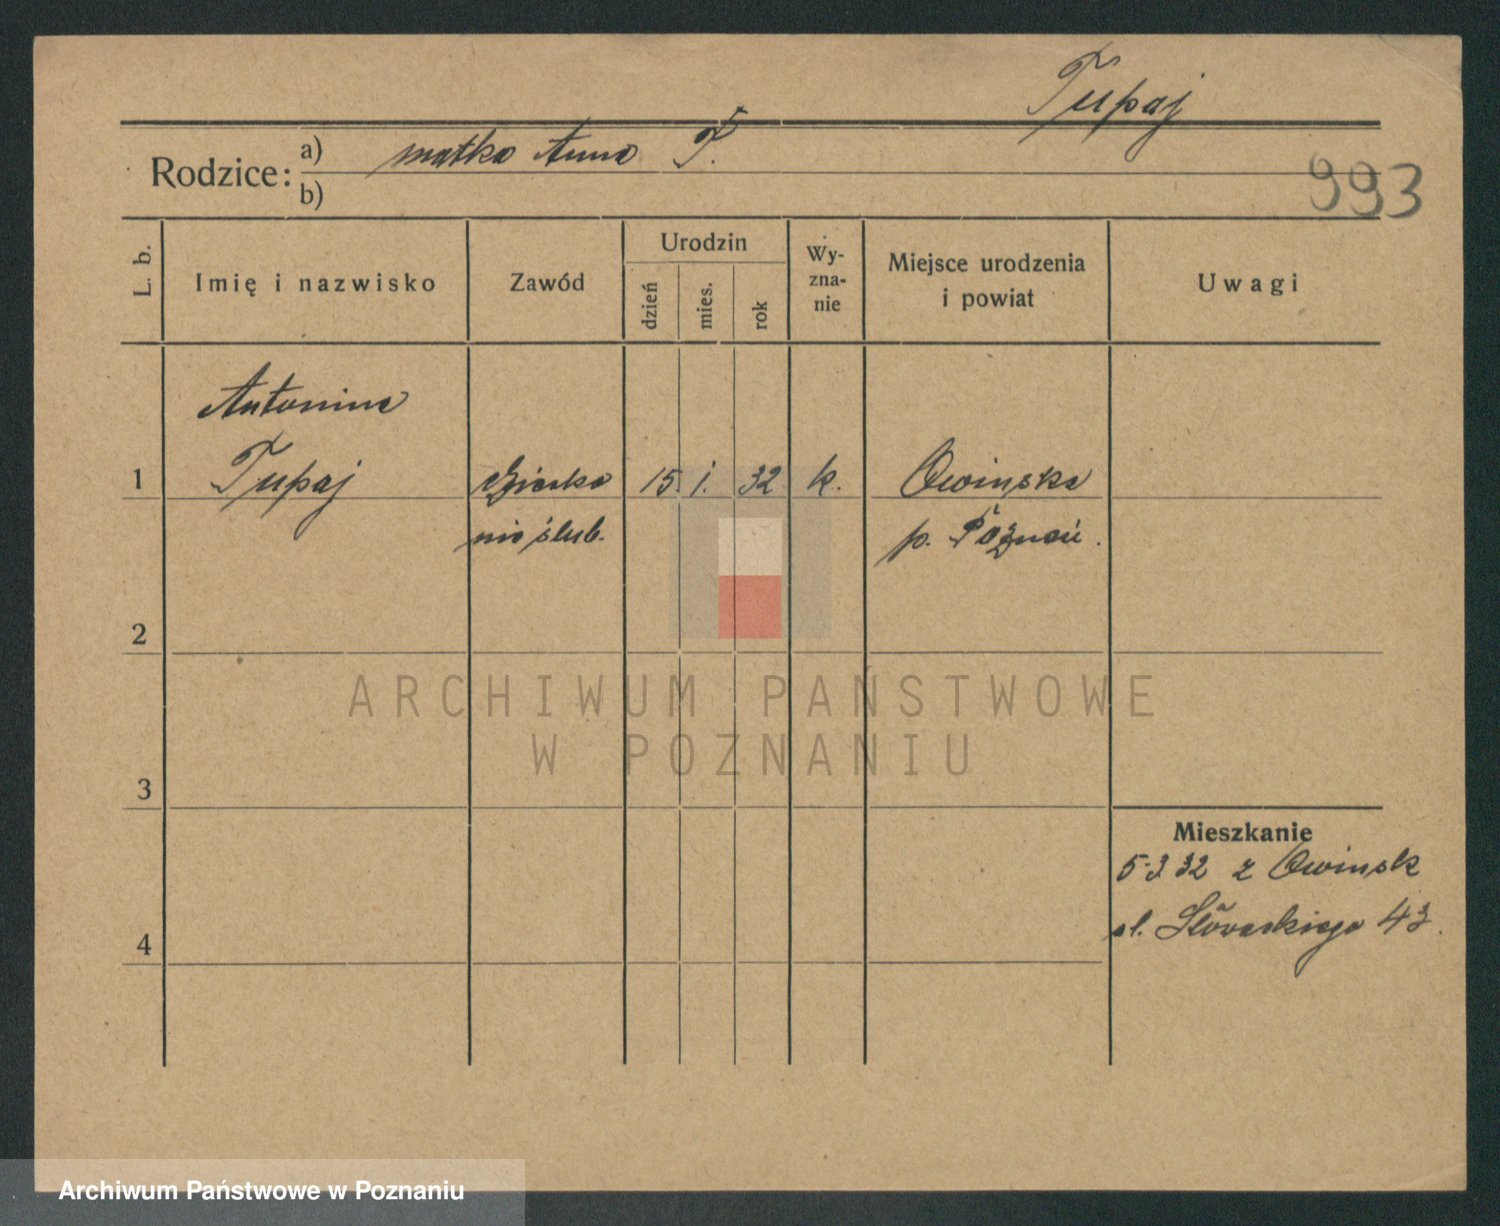 Tupaj
Rodzice: a) matka Anna T.
b)
993
L. b.
Imię i nazwisko
Zawód
Urodzin
dzień
mies.
rok
Wy-
zna-
nie
Miejsce urodzenia
i powiat
Uwagi
Antonina
1 Tupaj 15. 1. 32 k. Owinska
nieślub. p. Poznań.
2
ARCHIWUM PAŃSTWOWE
W POZNANIU
3
Mieszkanie
5.3.32 z Owinsk
ul. Słowackiego 43.
4
Archiwum Państwowe w Poznaniu